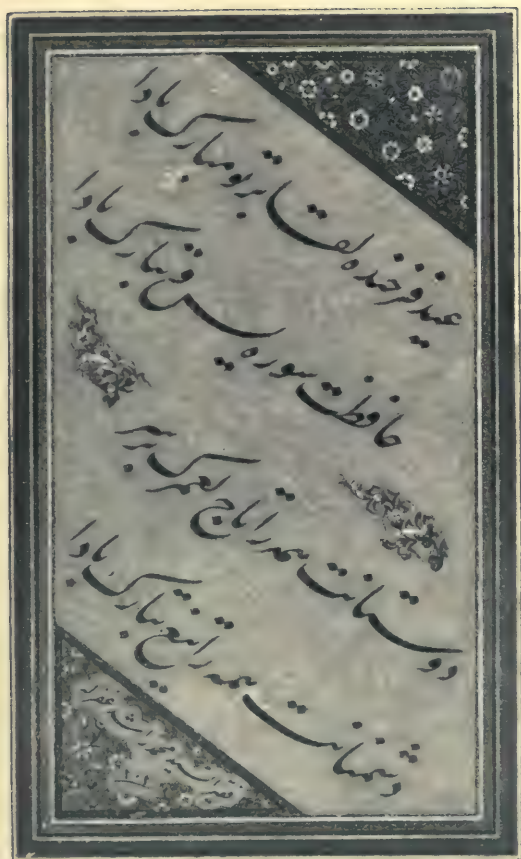 عید فرخنده لقا بر تو مبارک بادا
حافظت سوره یس و تبارک بادا
دوستانت همه را تاج لعمرک بر سر
دشمنانت همه را تیغ بتارک بادا
السید محمد